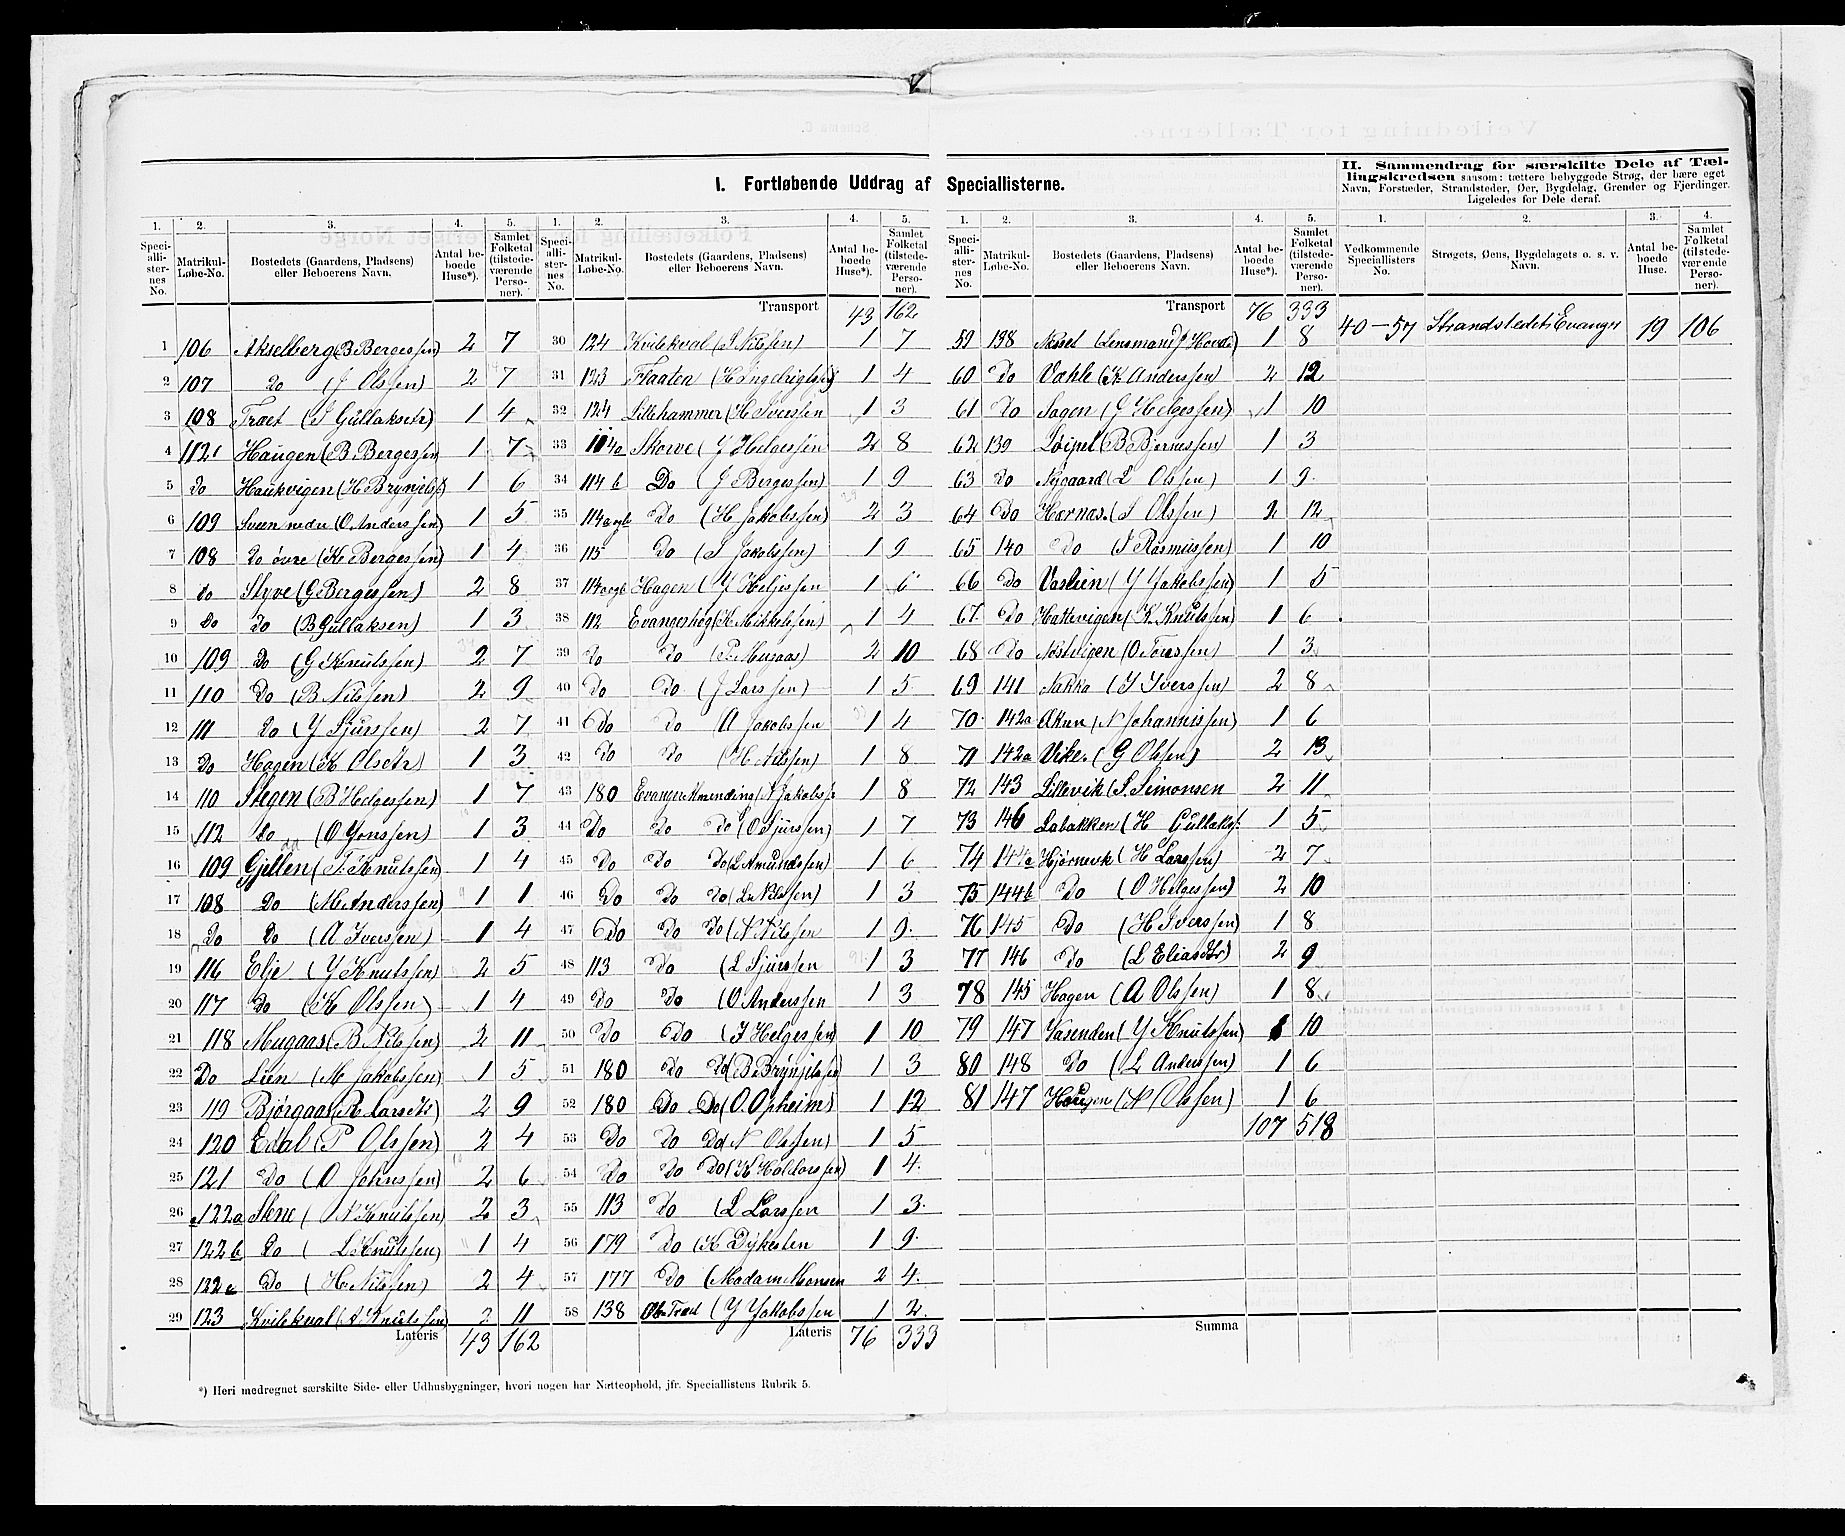 I. Fortløbende Uddrag af Speciallisterne.
II. Sammendrag for særskilte Dele af Tællingskredsen saasom: tættere bebyggede Strøg, der bære eget Navn, Forstæder, Strandsteder, Øer, Bygdelag, Grender og Fjerdinger. Ligeledes for Dele deraf.
1. 2. 3. 4. 5.
Speciallisternes No. Matrikul-Løbe-No. Bostedets (Gaardens, Pladsens) eller Beboerens Navn. Antal beboede Huse*). Samlet Folketal (tilstedeværende Personer).
1 106 Akselberg (B Bergessen) 2 7
2 107 Do (J Olssen) 2 7
3 108 Træet (I Gullaksdtr) 1 4
4 112 Haugen (B Bergessen 1 7
5 Do Haukvigen (H Brynjelss) 1 6
6 109 Sveen nedre (O Anderssen) 1 5
7 108 Do øvre (K Bergessen) 1 4
8 Do Styve (G Bergessen) 2 8
9 Do Do (B Gullaksen) 1 3
10 109 Do (G Knutssen) 2 7
11 110 Do (B Nilssen) 2 9
12 111 Do (Y Sjurssen) 2 7
13 Do Hagen (K Olsdtr) 1 3
14 110 Stegen (B Helgessen) 1 7
15 112 Do (O Yonssen) 1 3
16 109 Gjellen (T. Knutssen) 1 4
17 108 Do (M Anderssen) 1 1
18 Do Do (A Iverssen) 1 4
19 116 Elje (Y Knutssen) 2 5
20 117 Do (K Olssen) 1 4
21 118 Mugaas (B. Nilssen) 2 11
22 Do Lien (M Jakobssen) 1 5
23 119 Bjørgaas (R Larsdtr) 2 9
24 120 Edal (P Olssen) 2 4
25 121 Do (O Johnssen) 2 6
26 122a Stene (N Knutssen) 2 3
27 122b Do (L Knutssen) 1 4
28 122c Do (H Nilssen) 2 4
29 123 Kvilekval (A Knutssen) 2 11
Lateris 43 162
1. 2. 3. 4. 5.
Speciallisternes No. Matrikul-Løbe-No. Bostedets (Gaardens, Pladsens) eller Beboerens Navn. Antal beboede Huse*). Samlet Folketal (tilstedeværende Personer).
Transport 43 162
30 124 Kvilekval (I Nilssen) 1 7
31 123 Flaaten (H Ingebrigtss) 1 4
32 124 Lillehammer (H Iverssen 1 3
33 114a Skorve (J Helgessen 2 8
34 114b Do (J Bergessen) 1 9
35 114a og b Do (H Jakobssen) 2 3
36 115 Do (I Jakobssen) 1 9
37 114a og b Hagen (Y Helgessen 1 6
38 112 Evangershøg (K Mikkelssen) 1 4
39 Do Do (P. Mugaas) 2 10
40 Do Do (J Larssen) 1 5
41 Do Do (A Jakobssen 1 4
42 Do Do (H Nilssen) 1 8
43 180 Evanger Almending (N Jakobss 1 8
44 Do Do Do (O Sjurssen) 1 7
45 Do Do Do (L Amundssen) 1 6
46 Do Do Do (L Nilssen) 1 3
47 Do Do Do (N Nilssen 1 9
48 113 Do (L Sjurssen 1 3
49 Do Do (O Anderssen 1 3
50 Do Do (I Helgessen) 1 10
51 180 Do Do (B Brynjelssen 1 3
52 180 Do Do (O. Opheim) 1 12
53 Do Do Do (N Olssen) 1 5
54 Do Do Do (K Haldorssen) 1 4
55 113 Do (L Larssen 1 3
56 179 Do (K Dykesten 1 9
57 177 Do (Madam Monsen 2 4
58 138 Træet (Y Yakobssen 1 2
Lateris 76 333
1. 2. 3. 4. 5.
Speciallisternes No. Matrikul-Løbe-No. Bostedets (Gaardens, Pladsens) eller Beboerens Navn. Antal beboede Huse*). Samlet Folketal (tilstedeværende Personer).
Transport 76 333
59 138 (Lensmand 1 8
60 Do Vahle (K Anderssen) 2 12
61 Do Sagen (G Helgessen) 1 10
62 139 Løipel (B Bjørnessen) 1 3
63 Do Nygaard (L Olssen) 1 9
64 Do Hornæs (I Olssen) 2 12
65 140 Do (I Rasmussen) 1 10
66 Do Vaslien (Y Yakobssen) 1 5
67 Do Hattevigen (K. Knutssen) 1 6
68 Do Næstvigen (O Torssen) 1 3
69 141 Nakka (I Iverssen) 2 8
70 142a Akun (N Johannissen) 1 6
71 142a Vike (G Olssen) 2 13
72 143 Lillevik (S. Simonsen 2 11
73 146 Labakken (H Gullakss 1 5
74 144a Hjørnevk (H Larssen) 2 7
75 144b Do (O Helgessen) 2 10
76 145 Do (H Iverssen) 1 8
77 146 Do (L Eliasdtr) 2 9
78 145 Hagen (A Olssen) 1 8
79 147 Vasenden (Y Knutssen) 1 10
80 148 Do (L Anderssen) 1 6
81 147 Haugen (N Olssen) 1 6
107 518
Summa
1. 2. 3. 4.
Vedkommende Speciallisters No. Strøgets, Øens, Bygdelagets o. s. v. Navn. Antal beboede Huse. Samlet Folketal (tilstedeværende Personer).
40 – 57 Strandstedet Evanger 19 106
*) Heri medregnet særskilte Side- eller Udhusbygninger, hvori nogen har Natteophold, jfr. Speciallistens Rubrik 5.